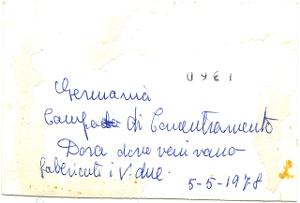 Germania
Campo di Concentramento
Dora dove venivano
fabbricati i V. due.
5-5-1978